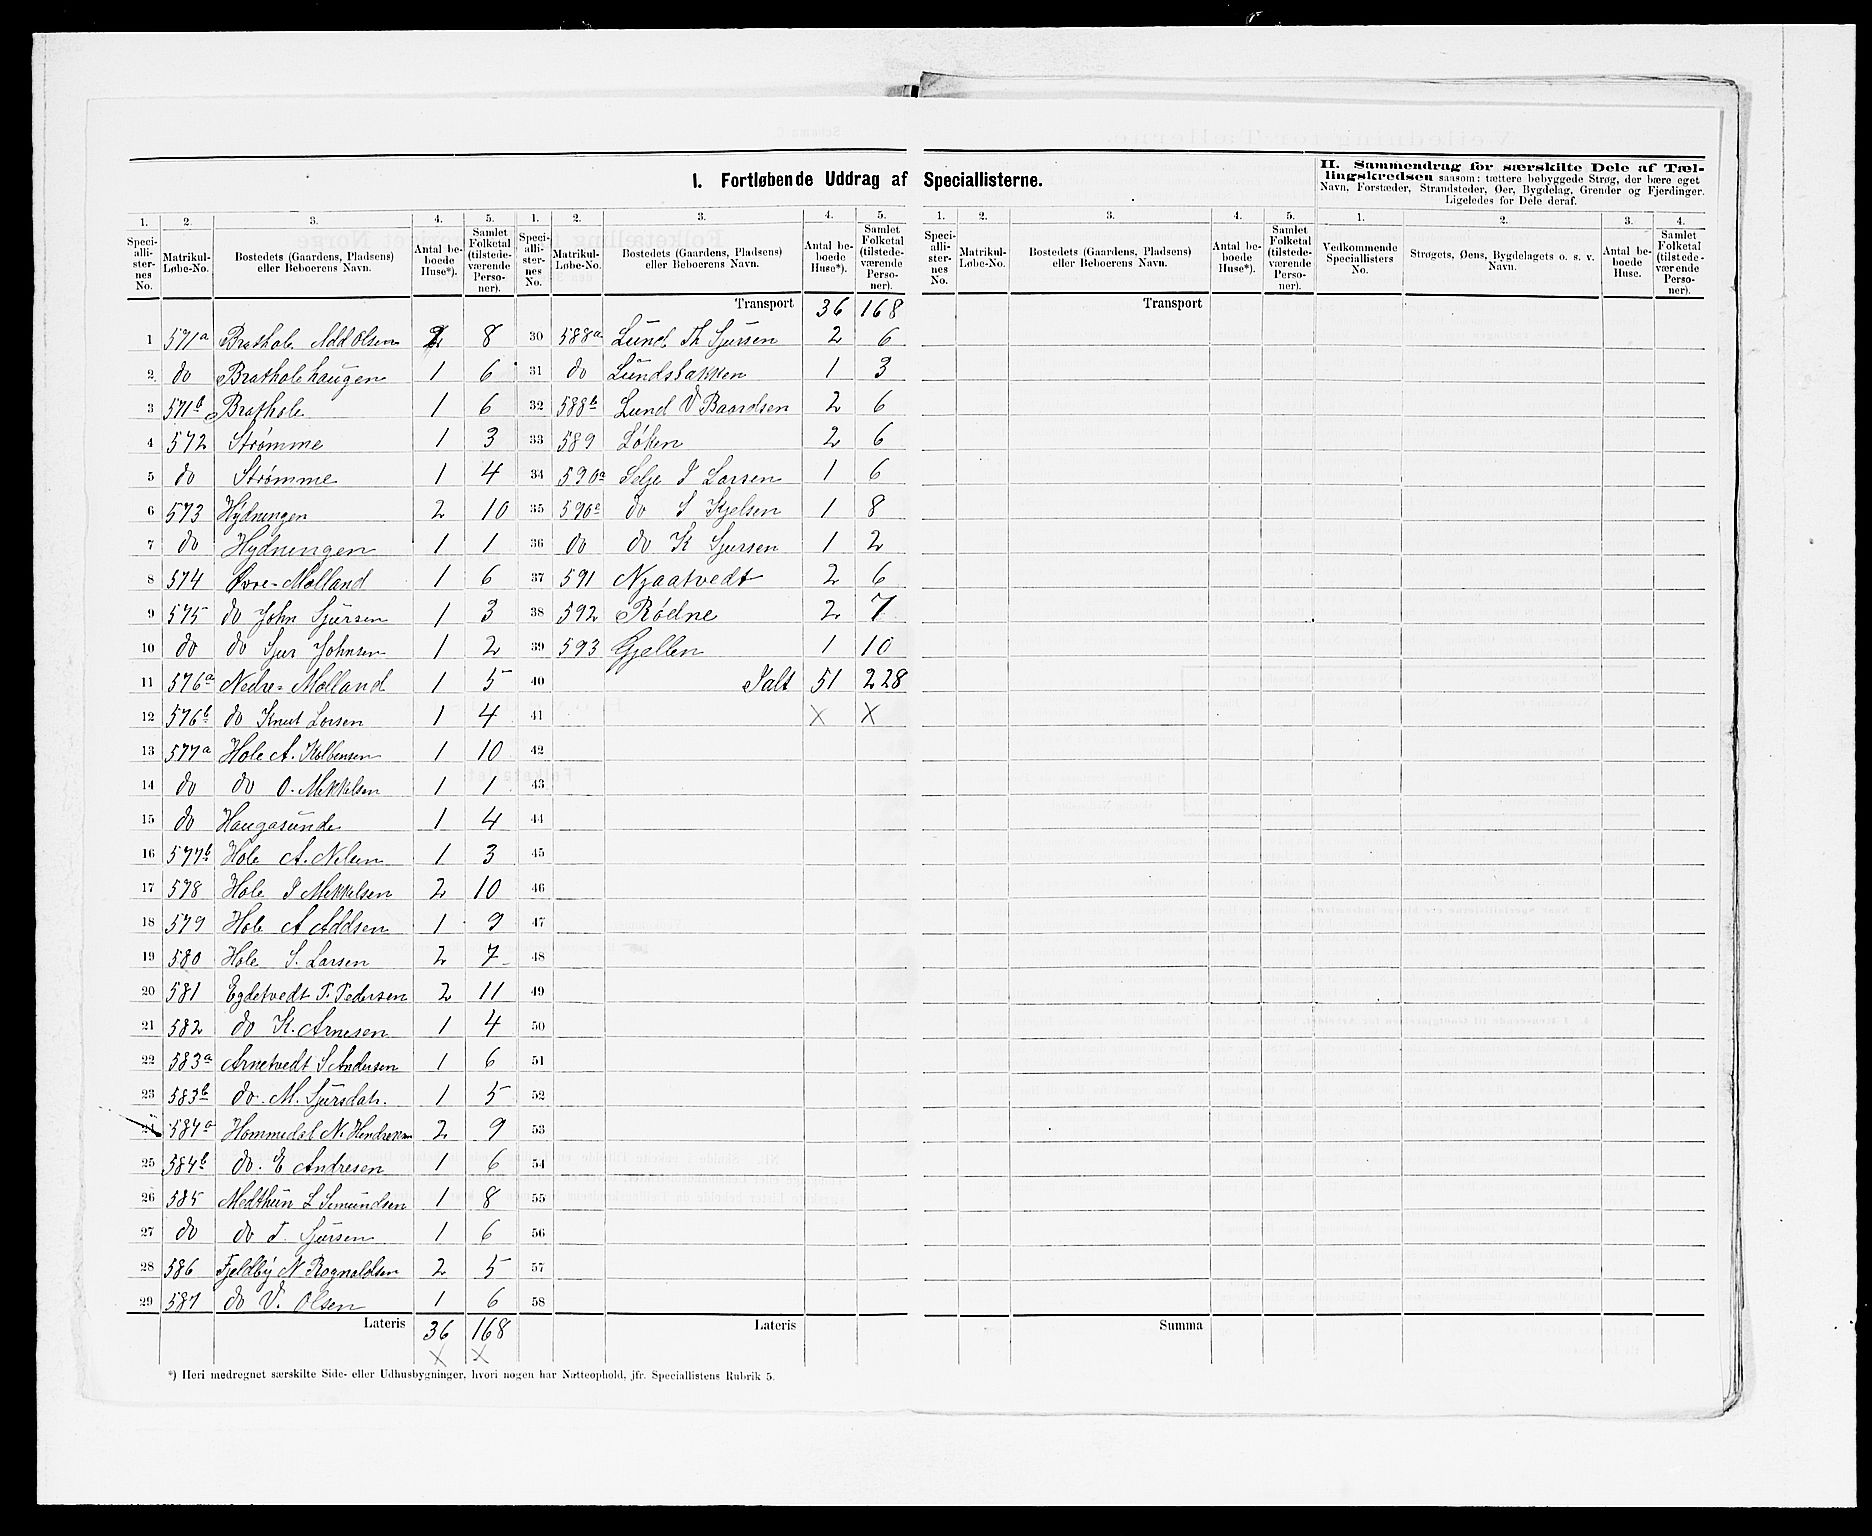 I. Fortløbende Uddrag af Speciallisterne.
II. Sammendrag for særskilte Dele af Tæl-
lingskredsen saasom: tættere bebyggede Strøg, der bære eget
Navn, Forstæder, Strandsteder, Øer, Bygdelag, Grender og Fjerdinger.
Ligeledes for Dele deraf.
1. 2. 3. 4. 5. 1. 2. 3. 4. 5. 1. 2. 3. 4. 5. 1. 2. 3. 4.
Speci-alli-ster-nes No. Matrikul-Løbe-No. Bostedets (Gaardens, Pladsens) eller Beboerens Navn. Antal be-boede Huse*). Samlet Folketal (tilstede-værende Perso-ner).
Speci-alli-ster-nes No. Matrikul-Løbe-No. Bostedets (Gaardens, Pladsens) eller Beboerens Navn. Antal be-boede Huse*). Samlet Folketal (tilstede-værende Perso-ner).
Speci-alli-ster-nes No. Matrikul-Løbe-No. Bostedets (Gaardens, Pladsens) eller Beboerens Navn. Antal be-boede Huse*). Samlet Folketal (tilstede-værende Perso-ner).
Vedkommende Speciallisters No. Strøgets, Øens, Bygdelagets o. s. v. Navn. Antal be-boede Huse. Samlet Folketal (tilstede-værende Perso-ner).
1 571a Brathole Add Olsen 2 8
2 do Bratholehaugen 1 6
3 571b Brathole 1 6
4 572 Strømme 1 3
5 do Strømme 1 4
6 573 Hydningen 2 10
7 do Hydningen 1 1
8 574 Øvre-Mølland 1 6
9 575 do John Sjursen 1 3
10 do do Sjur Johnsen 1 2
11 576a Nedre-Mølland 1 5
12 576b do Knut Larsen 1 4
13 577a Hole A. Kolbensen 1 10
14 do do O. Mikkelsen 1 1
15 do Haugasunde 1 4
16 577b Hole A. Nilsen 1 3
17 578 Hole I Mikkelsen 2 10
18 579 Hole A Addsen 1 9
19 580 Hole S. Larsen 2 7
20 581 Egdetvedt P. Pedersen 2 11
21 582 do K. Arnesen 1 4
22 583a Arnetvedt S Andersen 1 6
23 583b do M. Sjursdatr. 1 5
24 584a Hommedal N. Hendriksen 2 9
25 584b do. E Andresen 1 6
26 585 Medthun L Semundsen 1 8
27 do do T. Sjursen 1 6
28 586 Fjeldby N Rognaldsen 2 5
29 587 do V. Olsen 1 6
Lateris 36 168
X X
Transport 36 168
30 588a Lund Th Sjursen 2 6
31 do Lundsbakken 1 3
32 588b Lund V Baardsen 2 6
33 589 Løken 2 6
34 590a Selje I Larsen 1 6
35 590a do S Kjelsen 1 8
36 do do K Sjursen 1 2
37 591 Njaatvedt 2 6
38 592 Rødne 2 7
39 593 Gjellen 1 10
40 Ialt 51 228
41 X X
42
43
44
45
46
47
48
49
50
51
52
53
54
55
56
57
58
Lateris
Transport
Summa
*) Heri medregnet særskilte Side- eller Udhusbygninger, hvori nogen har Natteophold, jfr. Speciallistens Rubrik 5.